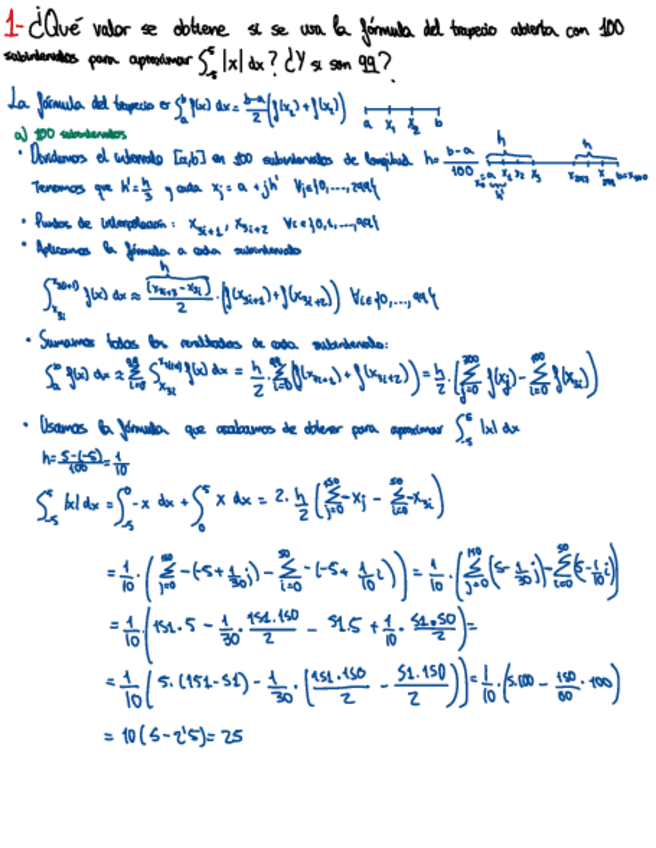 1- ¿Qué valor se obtiene si se usa la fórmula del trapecio abierta con 100
subintervalos para aproximar ∫_{-5}^{5} |x| dx? ¿Y si son 99?
La fórmula del trapecio es ∫_a^b f(x) dx = (b-a)/2 (f(x_1)+f(x_2))
a x_1 x_2 b
a) 100 subintervalos
• Dividimos el intervalo [a,b] en 100 subintervalos de longitud h = (b-a)/100
Tenemos que h' = h/3 y cada x_j = a + jh' ∀j∈{0,...,299}
• Puntos de interpolación: x_{3i+1}, x_{3i+2} ∀i∈{0,1,...,99}
• Aplicamos la fórmula a cada subintervalo
∫_{x_{3i}}^{x_{3(i+1)}} f(x) dx ≈ [x_{3i+3} - x_{3i}]/2 · (f(x_{3i+1})+f(x_{3i+2})) ∀i∈{0,...,99}
• Sumamos todos los resultados de cada subintervalo:
∫_a^b f(x) dx ≈ Σ_{i=0}^{99} ∫_{x_{3i}}^{x_{3(i+1)}} f(x) dx = h/2 · Σ_{i=0}^{99} (f(x_{3i+1}) + f(x_{3i+2})) = h/2 · (Σ_{j=0}^{300} f(x_j) - Σ_{i=0}^{100} f(x_{3i}))
• Usamos la fórmula que acabamos de obtener para aproximar ∫_{-5}^{5} |x| dx
h = (5-(-5))/100 = 1/10
∫_{-5}^{5} |x| dx = ∫_{-5}^{0} -x dx + ∫_0^5 x dx = 2 · h/2 (Σ_{j=0}^{150} -x_j - Σ_{i=0}^{50} -x_{3i})
= 1/10 · (Σ_{j=0}^{150} -(-5+1/30 j) - Σ_{i=0}^{50} -(-5+ 1/10 i)) = 1/10 · (Σ_{j=0}^{150} (5-1/30 j) - Σ_{i=0}^{50} (5-1/10 i))
= 1/10 · (151·5 - 1/30 · 151·150/2 - 51·5 + 1/10 · 51·50/2) =
= 1/10 (5·(151-51) - 1/30 · (151·150/2 - 51·150/2)) = 1/10 · (5·100 - 150/60 · 100)
= 10(5-2'5) = 25